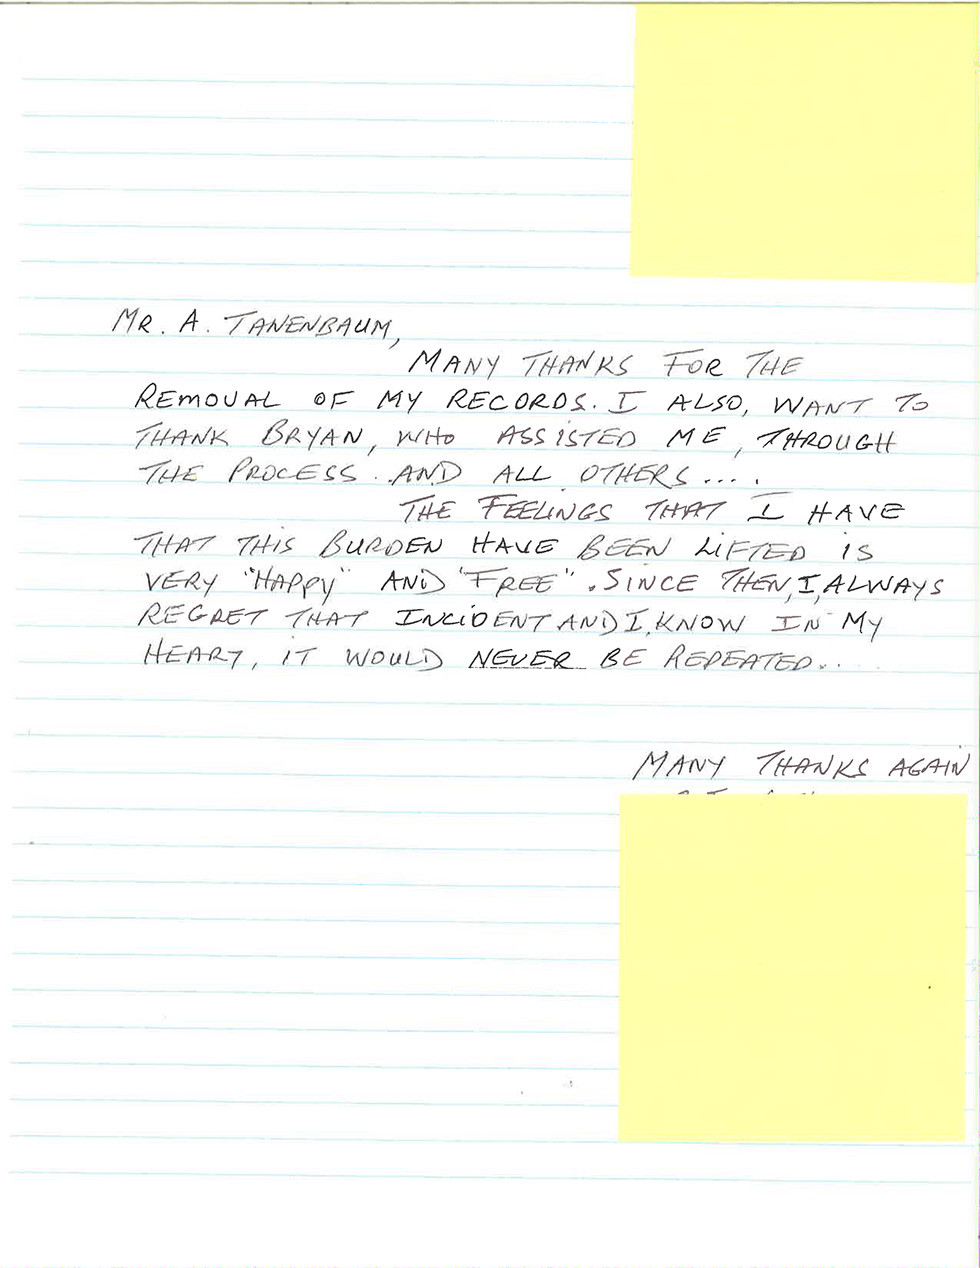 MR. A. TANENBAUM,
MANY THANKS FOR THE
REMOVAL OF MY RECORDS. I ALSO, WANT TO
THANK BRYAN, WHO ASSISTED ME, THROUGH
THE PROCESS.. AND ALL OTHERS....
THE FEELINGS THAT I HAVE
THAT THIS BURDEN HAVE BEEN LIFTED IS
VERY "HAPPY" AND "FREE". SINCE THEN, I, ALWAYS
REGRET THAT INCIDENT AND I, KNOW IN MY
HEART, IT WOULD NEVER BE REPEATED..
MANY THANKS AGAIN